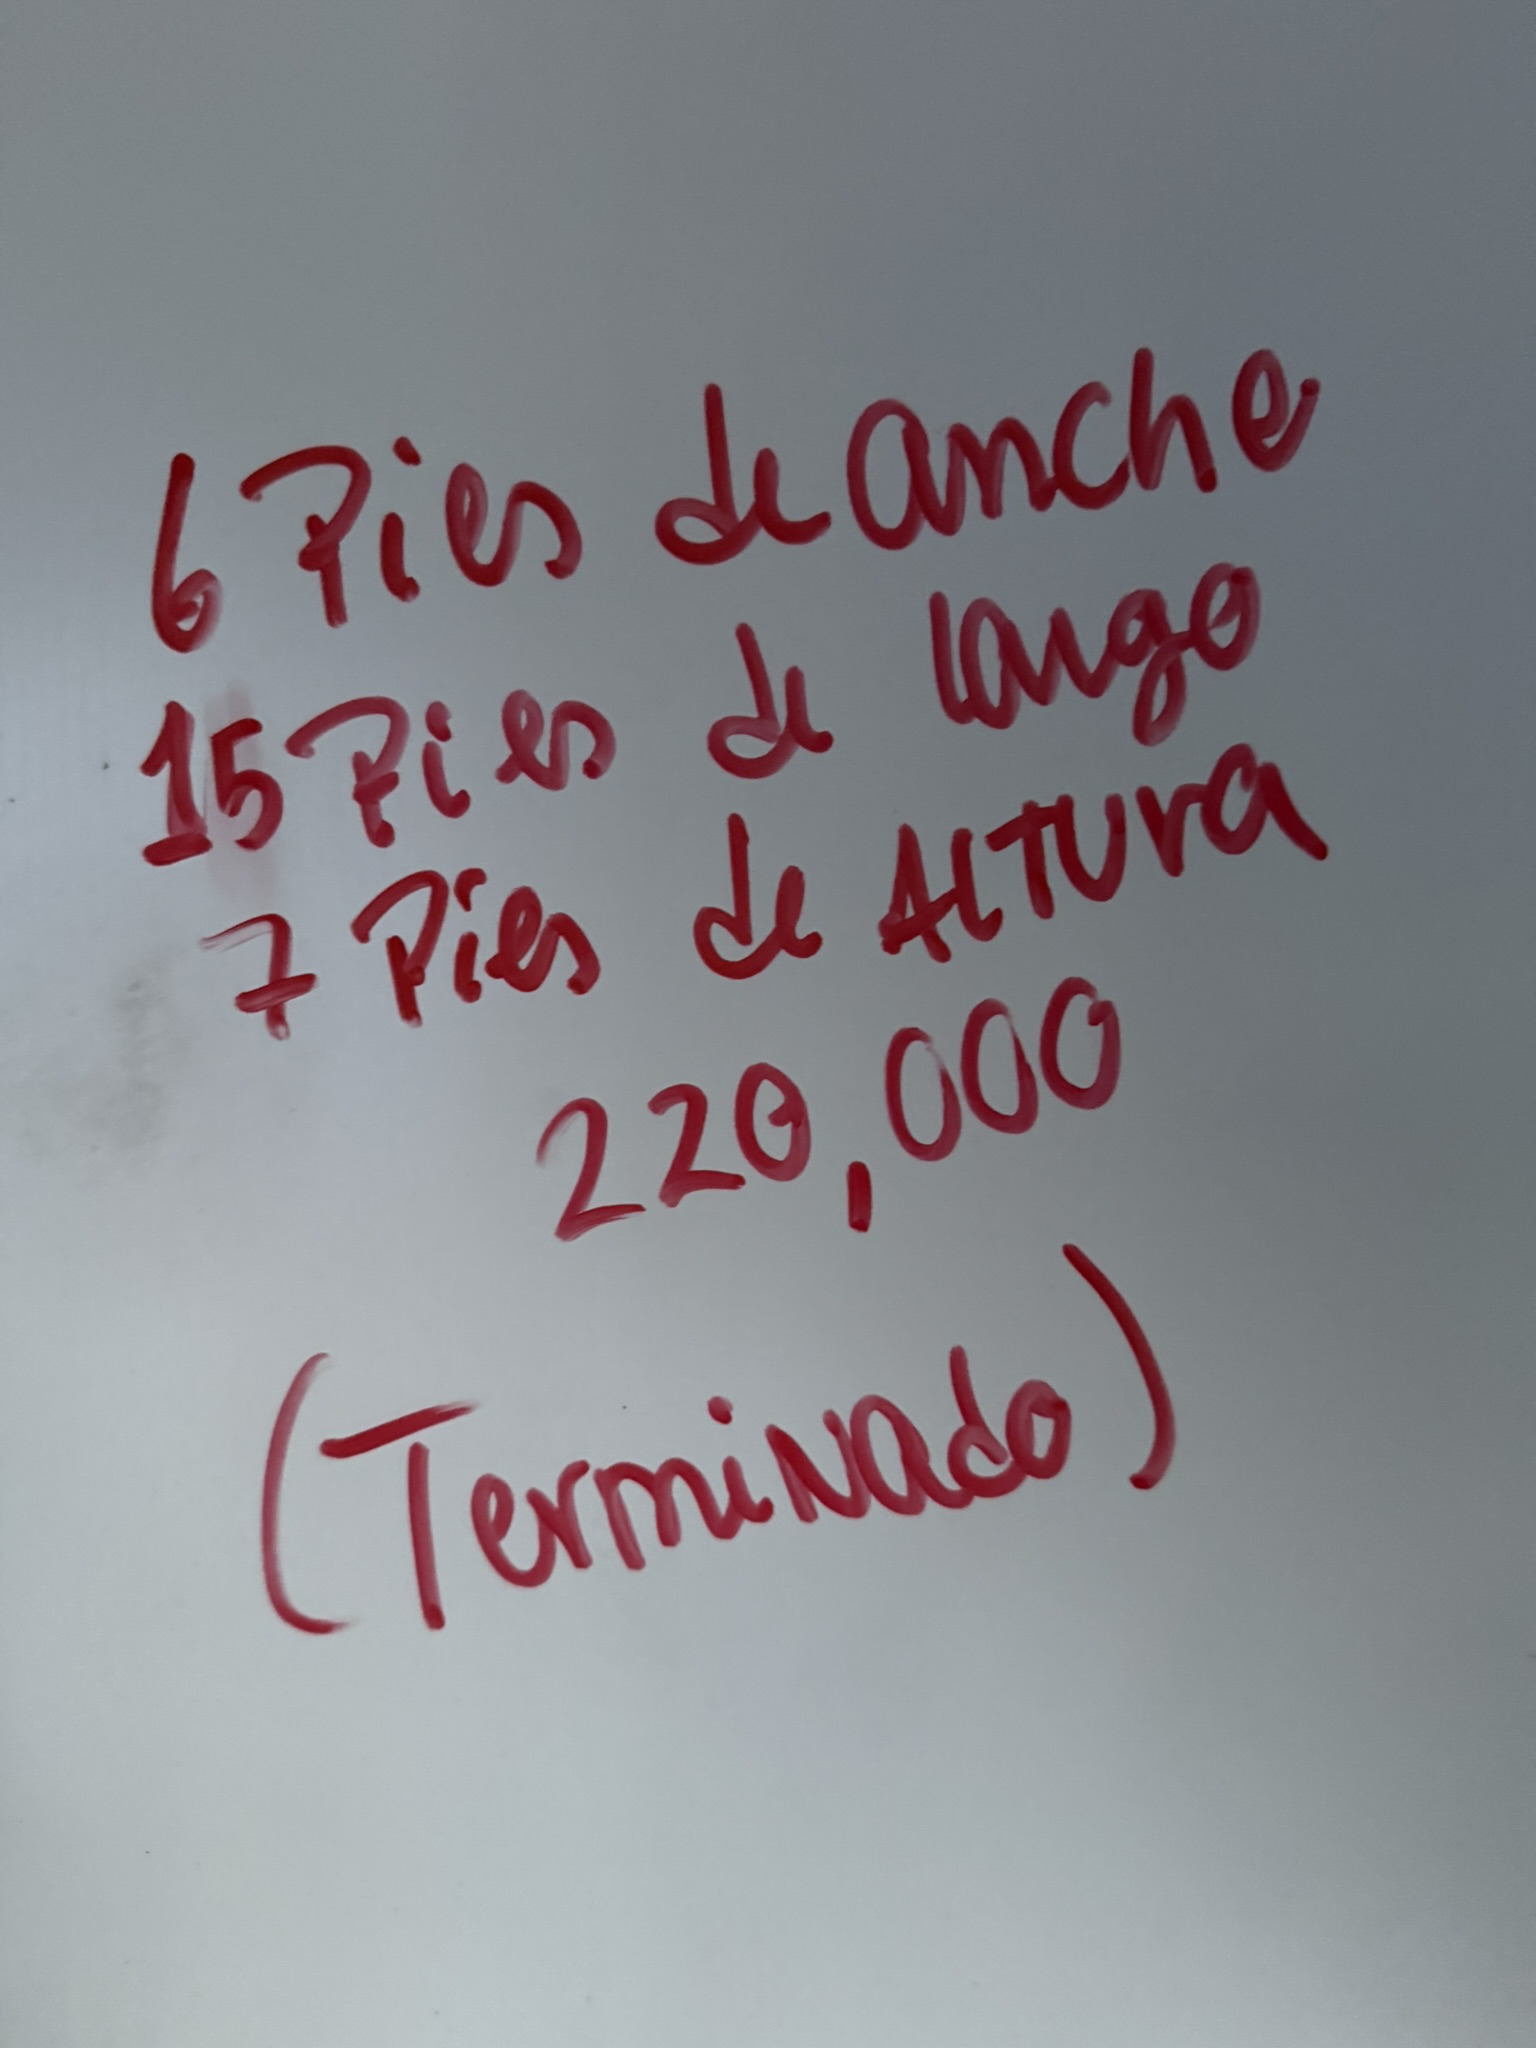 6 Pies de anche
15 Pies de largo
7 Pies de ALTura
220,000
(Terminado)